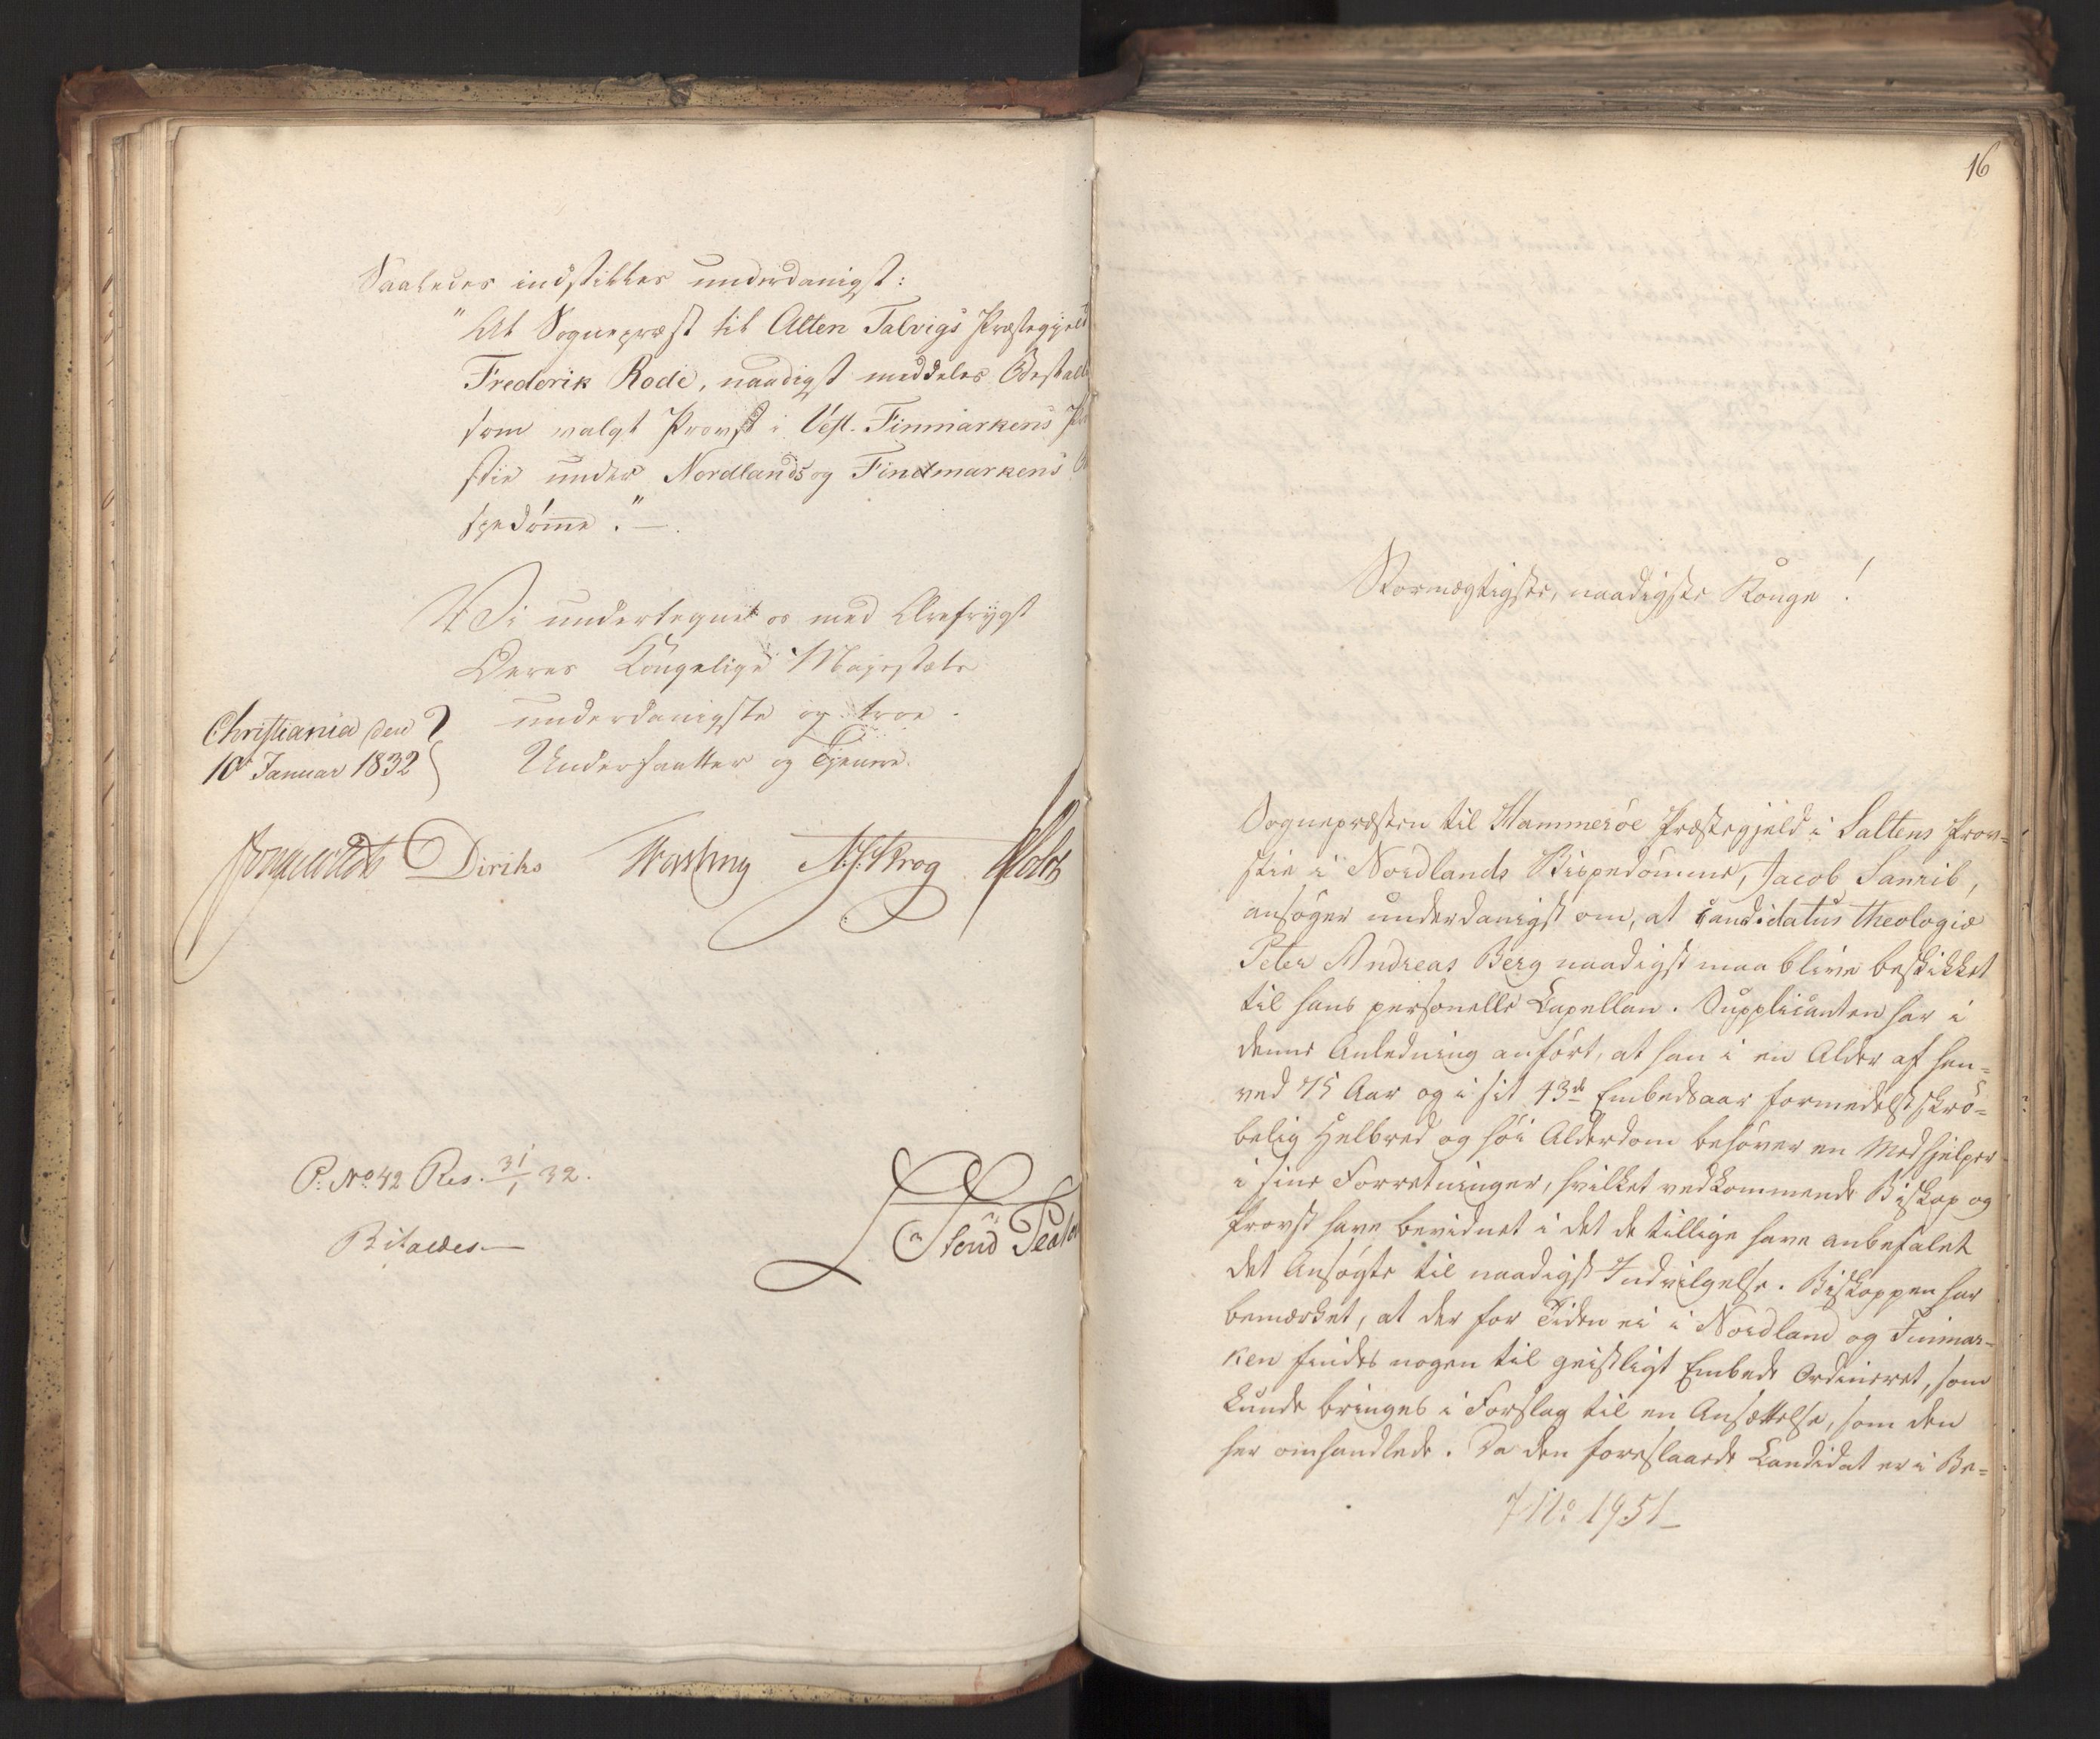 Saaledes indstilles underdanigst:
"At Sognepræst til Alten Talvigs Præstegjeld
Frederik Rode, naadigst meddeles Bestall
som valgt Provst i Vest-Finmarkens Pro
stie under Nordlands og Findmarkens Bi
spedømme." —
Vi undertegne os med Ærefrygt
Deres Kongelige Majestæts
underdanigste og troe
Undersaatter og Tjenere.
Christiania den
10de Januar 1832
Diriks N. J. Krog Holst
P. No 42 Res. 31/1 32.
Bifaldes —
16
Stormægtigste, naadigste Konge!
Sognepræsten til Hammerøe Præstegjeld i Saltens Prov-
stie i Nordlands Bispedømme, Jacob
ansøger underdanigst om, at Candidatus theologiæ
Peter Andreas Berg naadigst maa blive beskikket
til hans personelle Capellan. Supplicanten har i
denne Anledning anført, at han i en Alder af hen-
ved 75 Aar og i sit 43de Embedsaar formedelst skrø-
belig Helbred og høi Alderdom behøver en Medhjelper
i sine Forretninger, hvilket vedkommende Biskop og
Provst have bevidnet i det de tillige have anbefalet
det Ansøgte til naadigst Indvilgelse. Biskoppen har
bemærket, at der for Tiden ei i Nordland og Finmar-
ken findes nogen til geistligt Embede Ordineret, som
kunde bringes i Forslag til en Ansættelse, som den
her omhandlede. Da den foreslaaede Candidat er i Be-
No 1951 —